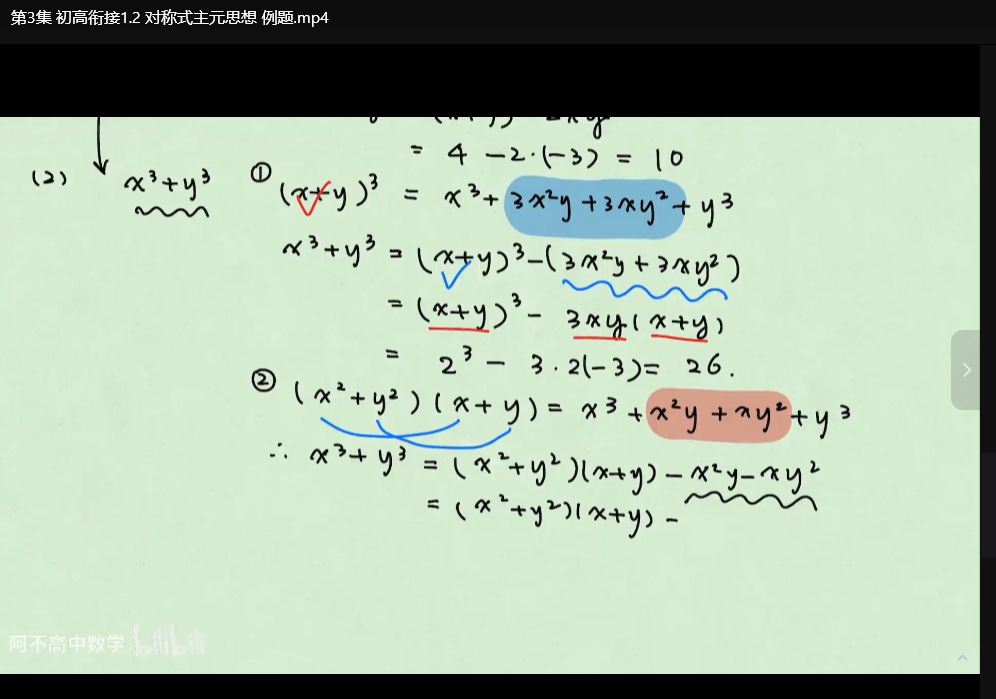 第3集 初高衔接1.2 对称式主元思想 例题.mp4
= 4 -2·(-3) = 10
(2) x³+y³ ① (x+y)³ = x³+3x²y+3xy²+y³
x³+y³ = (x+y)³-(3x²y+3xy²)
= (x+y)³- 3xy(x+y)
= 2³ - 3·2(-3)= 26.
② (x²+y²)(x+y)= x³+x²y+xy²+y³
∴ x³+y³ = (x²+y²)(x+y)-x²y-xy²
= (x²+y²)(x+y)-
阿不高中数学 bilibili